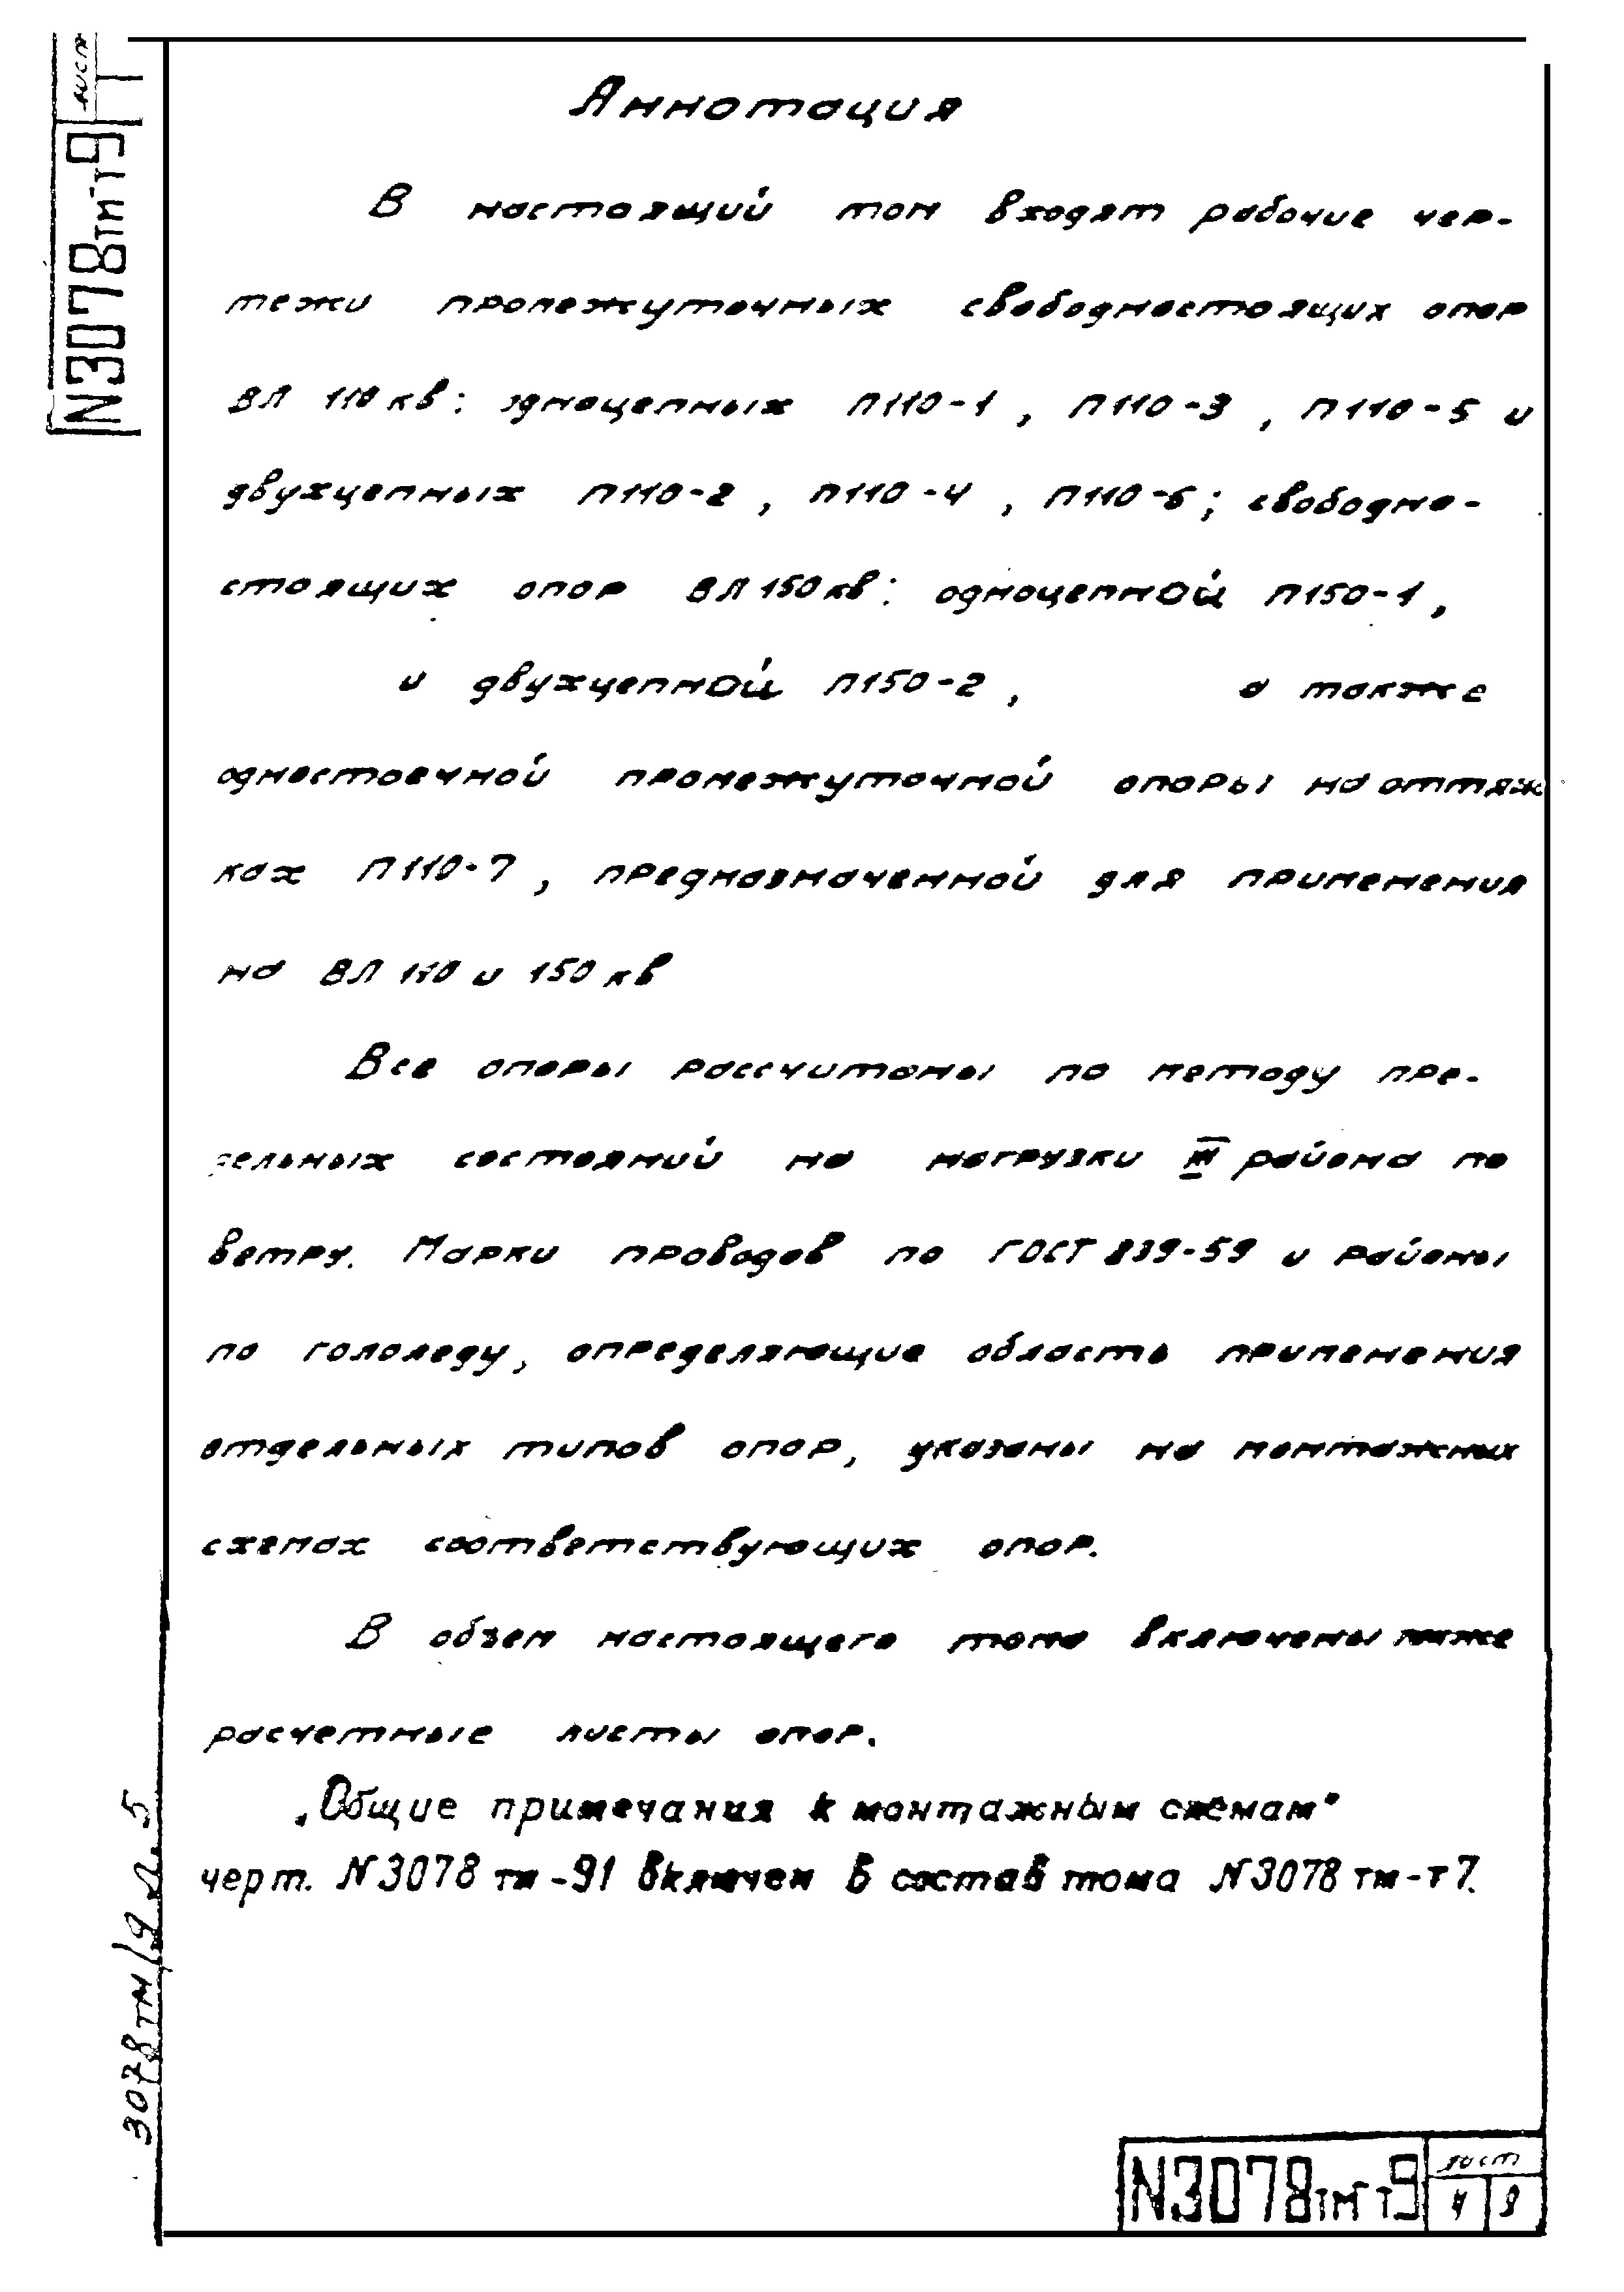 лист
N3078тм-т9
Аннотация
В настоящий том входят рабочие чер-
тежи промежуточных свободностоящих опор
ВЛ 110 кв: одноцепных П110-1, П110-3, П110-5 и
двухцепных П110-2, П110-4, П110-6; свободно-
стоящих опор ВЛ 150 кв: одноцепной П150-1,
и двухцепной П150-2, а также
одностоечной промежуточной опоры на оттяж
ках П110-7, предназначенной для применения
на ВЛ 110 и 150 кв
Все опоры рассчитаны по методу пре-
дельных состояний на нагрузки III района по
ветру. Марки проводов по ГОСТ 839-59 и районы
по гололеду, определяющие область применения
отдельных типов опор, указаны на монтажных
схемах соответствующих опор.
В объем настоящего тома включены также
расчетные листы опор.
„Общие примечания к монтажным схемам"
черт. N3078 тм-91 включен в состав тома N3078 тм-т7.
3078тм/9 л. 5
N3078тм-т9
лист
4